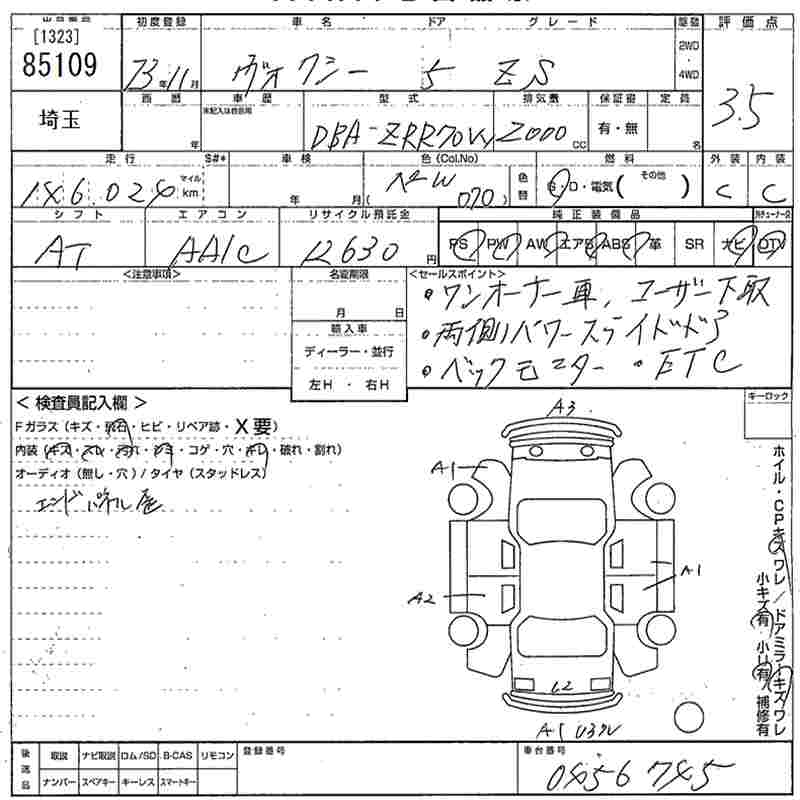 [1323]
85109
初度登録
車名
ドア
グレード
駆動
評価点
23年11月
ヴォクシー
5
ZS
2WD
・
4WD
3.5
埼玉
車歴
型式
排気量
保証書
定員
年
未記入は自家用
DBA-ZRR70W
2000 CC
有・無
名
走行
S#*
車検
色(Col.No)
燃料
外装
内装
186,024
マイル
km
年
月
パールW
(070)
色替
G・D・電気(その他)
C
C
シフト
エアコン
リサイクル預託金
純正装備品
AT
AAIC
12630円
PS
PW
AW
エアB
ABS
革
SR
ナビ
DTV
<注意事項>
名変期限
月
日
輸入車
ディーラー・並行
左H・右H
<セールスポイント>
・ワンオーナー車, ユーザー下取
・両側パワースライドドア
・バックモニター ・ETC
キーロック
<検査員記入欄>
Fガラス(キズ・飛石・ヒビ・リペア跡・X要)
内装(キズ・スレ・汚れ・コゲ・穴・破れ・割れ)
オーディオ(無し・穴)/タイヤ(スタッドレス)
エンドパネル歪
A3
A1
A2
A1
L2
A1 U3
ホイル・CPキズワレ/ドアミラーキズワレ
小キズ有 小U有 補修有
後送品
取説
ナビ取説
ロム/SD
B-CAS
リモコン
ナンバー
スペアキー
キーレス
スマートキー
登録番号
車台番号
0456745